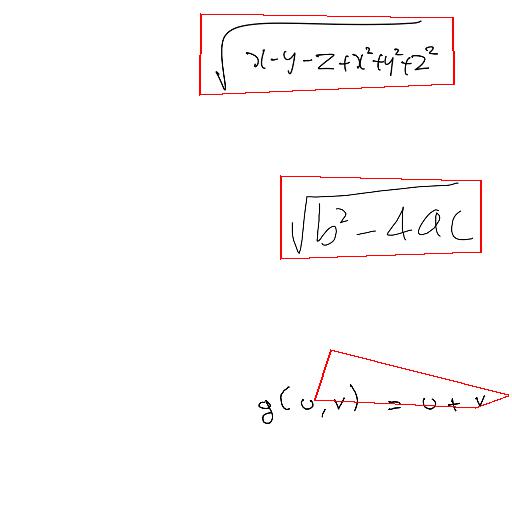 √(x-y-z+x²+y²+z²)
√(b²-4ac)
g(u,v) = u+v